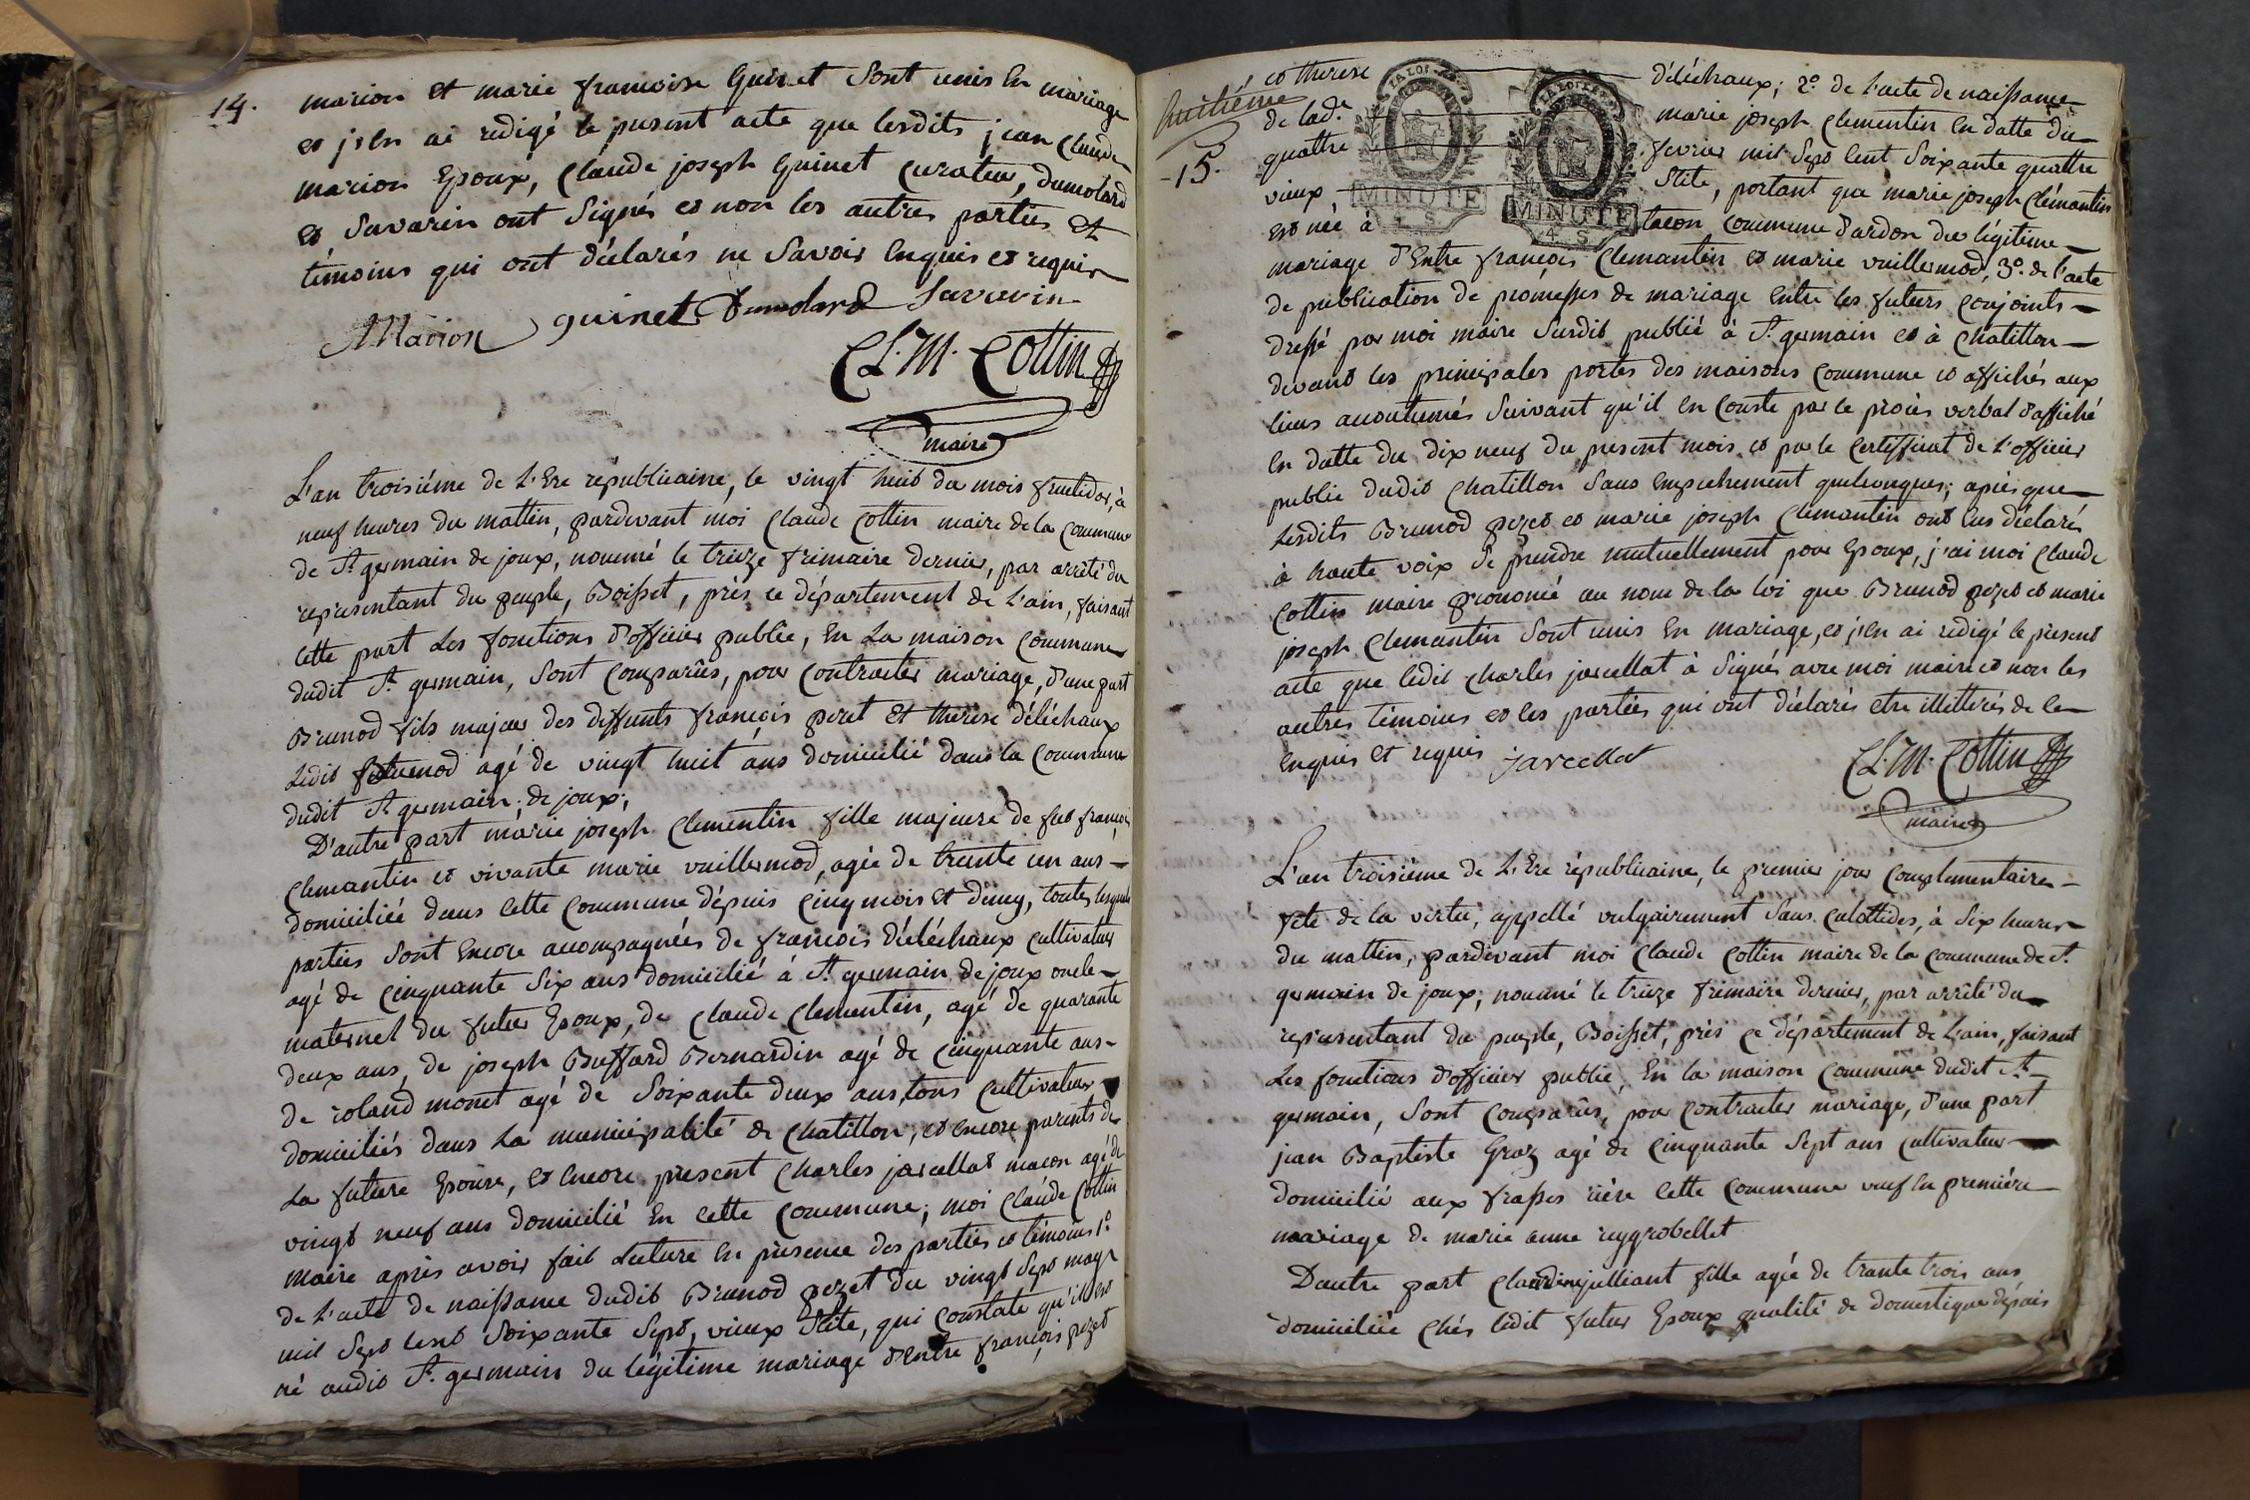 14.
marion et marie francoise Guinet Sont unis En mariage
et j'En ai redigé le present acte que lesdits jean Claude
marion Epoux, Claude joseph Guinet Curateur, dumolard
et Savarin ont Signés et non les autres parties et
témoins qui ont déclarés ne Savoir Enquis et requis
Marion guinet Dumolard Savarin
Cl. M. Cottin
maire
L'an troisiéme de L'Ere républicaine, le vingt huit du mois fructidor, à
neuf heures du mattin, pardevant moi Claude Cottin maire de la Commune
de St. germain de joux, nommé le treize frimaire dernier, par arrêté du
representant du peuple, Boisset, près ce département de L'ain, faisant
Cette part Les fonctions d'officier public, En La maison Commune
dudit St. germain, Sont Comparûs, pour Contracter mariage, d'une part
Brunod fils majeur des deffunts françois pezet Et therese déléchaux
Ledit Brunod agé de vingt huit ans domicilié dans la Commune
dudit St. germain de joux;
D'autre part marie joseph Clementin fille majeure de feu françois
Clemantin et vivante marie vuillermod, agée de trente un ans
domiciliée dans Cette Commune dépuis Cinq mois Et demy, toutes lesquelles
parties Sont Encore accompagnées de francois déléchaux Cultivateur
agé de Cinquante Six ans domicilié à St. germain de joux oncle
maternel du futur Epoux, de Claude Clementin, agé de quarante
deux ans, de joseph Buffard Bernardin agé de Cinquante ans
de roland monet agé de Soixante deux ans, tous Cultivateurs
domiciliés dans La municipalité de Chatillon, et Encore parents de
La future Epouse, et Encore present Charles jarcellat macon agé de
vingt neuf ans domicilié En Cette Commune; moi Claude Cottin
maire après avoir fait Lecture En présence des parties et témoins 1.°
de L'acte de naissance dudit Brunod pezet du vingt Sept may
mil Sept Cent Soixante Sept, vieux Stite, qui Constate qu'il est
né audit St. germain du légitime mariage d'Entre françois pezet
huitiéme
15.
et therese déléchaux; 2.° de l'acte de naissance
de lad.e marie joseph Clementin En datte du
quattre fevrier mil Sept Cent Soixante quattre
vieux Stite, portant que marie joseph Clémantin
est née à tacon Commune d'ardon du légitime
LA LOI
MINUTE
4 S
LA LOI
MINUTE
4 S
mariage d'Entre françois Clemantin et marie vuillermod, 3.° de l'acte
de publication de promesses de mariage Entre les futurs Conjoints
dressé par moi maire Susdit publié à St. germain et à Chatillon
devant les principales portes des maisons Commune et affichés aux
lieux accoutumés Suivant qu'il En Conste par le procès verbal d'affiché
En datte du dix neuf du present mois et par le Certifficat de L'officier
public dudit Chatillon Sans Empechement quelconques; après que
Lesdits Brunod pezet et marie joseph Clemantin ont Eus déclaré
à haute voix Se prendre mutuellement pour Epoux, j'ai moi Claude
Cottin maire prononcé au nom de la loi que Brunod pezet et marie
joseph Clemantin Sont unis En mariage, et j'En ai redigé le présent
acte que ledit Charles jarcellat à Signés avec moi maire et non les
autres témoins et les parties qui ont déclarés etre illittérés de ce
Enquis Et requis jarcellat
Cl. M. Cottin
maire
L'an troisiéme de L'Ere républicaine, le premier jour Complementaire
fete de la vertu, appellé vulgairement Sans culottides, à Six heures
du mattin, pardevant moi Claude Cottin maire de la Commune de St.
germain de joux, nommé le treize frimaire dernier, par arrêté du
representant du peuple, Boisset, près ce département de L'ain, faisant
Les fonctions d'officier public, En la maison Commune dudit St.
germain, Sont Comparûs, pour Contracter mariage, d'une part
jean Baptiste Groz agé de Cinquante Sept ans Cultivateur
domicilié aux frasses rière Cette Commune veuf En première
mariage de marie anne reygrobellet
D'autre part Claudine julliant fille agée de trante trois ans
domiciliée Chés ledit futur Epoux qualité de domestique dépuis